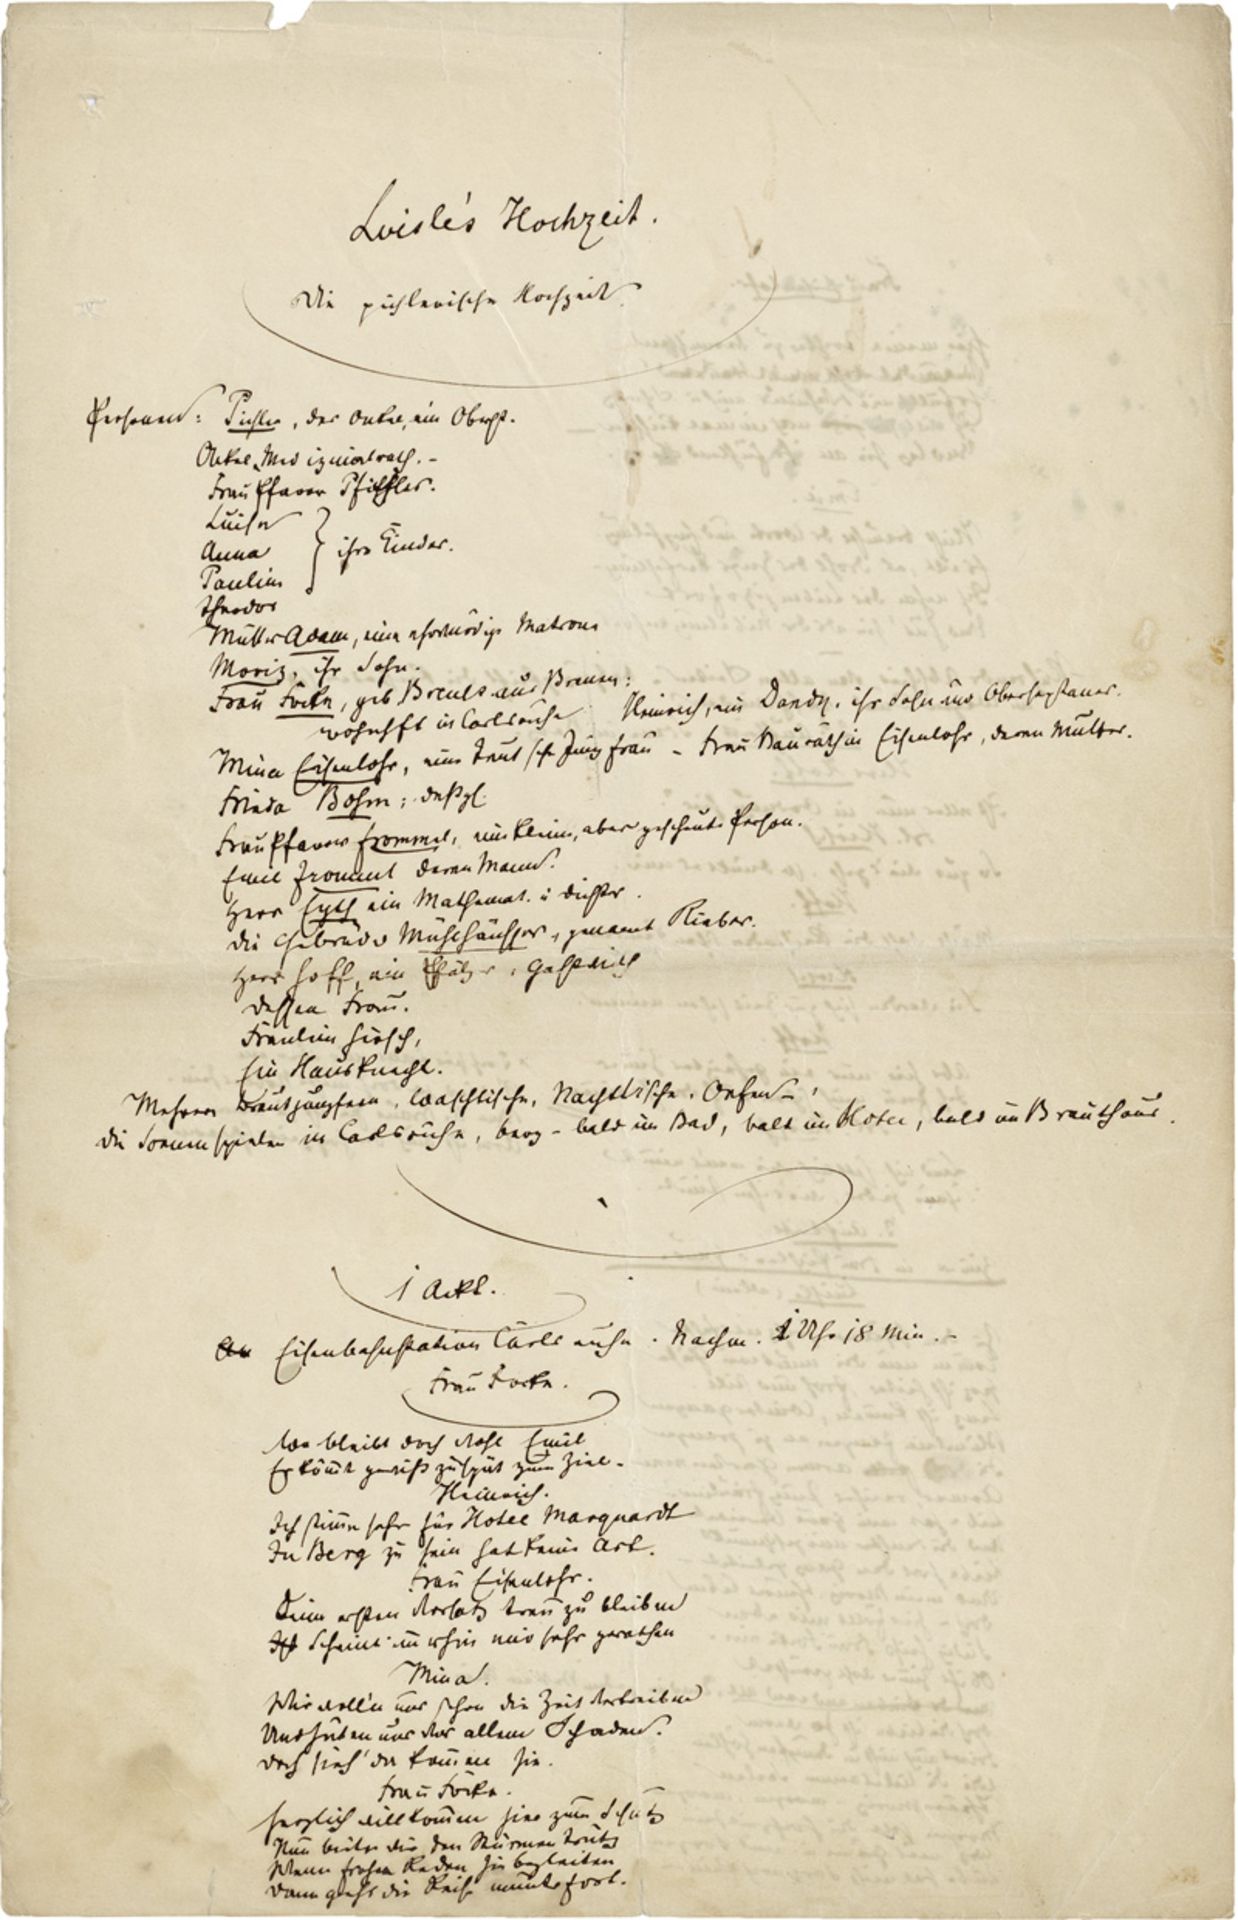 Luisle's Hochzeit.
Die pichlerische Hochzeit.
Personen: Pichler, der Onkel, ein Oberst.
Onkel Medizinalrath. -
Frau Pfarrer Pichler.
Luise
Anna
Pauline
} ihre Kinder.
Theodor
Mutter Adam, eine ehrwürdige Matrone
Moriz, ihr Sohn.
Frau Focke, geb Breuls aus Bremen:
wohnhft in Carlsruhe Heinrich, ein Dandy, ihr Sohn und
Mina Eisenlohr, eine teutsche Jungfrau - Frau Bauräthin Eisenlohr, deren Mutter.
Frieda Böhm: deßgl.
Frau Pfarrer Frommel, eine kleine, aber gescheute Person.
Emil Frommel deren Mann.
Herr Eyth ein Mathemat. u Dichter.
Die Gebrüder Mühlhäußer, genannt Rieber.
Herr Hoff, ein Pfälzer,
Dessen Frau.
Fräulein Hirsch,
Ein Hausknecht.
Mehrere Brautjungfern, Waschtische, Nachttische, Oefen -,
Die Scenen spielen in Carlsruhe, Berg - bald im Bad, bald im Hotel, bald im Brauthaus.
1 Ackt.
Eisenbahnstation Carlsruhe. Nachm. 1 Uhr 18 Min. -
Frau Focke.
Wo bleibt doch wohl Emil
Er kommt gewiß zu spät zum Ziel -
Heinrich.
Ich stimme sehr für Hotel Marquardt
In Berg zu sein hat keine Art.
Frau Eisenlohr.
Beim ersten Vorsatz treu zu bleiben
Scheint immerhin mir sehr gerathen
Mina.
Wir woll'n uns schon die Zeit vertreiben
Und hüten uns vor allem Schaden.
Doch sieh' da kommen sie.
Frau Focke.
Herzlich willkommen hier zum Schutz
Nun bieten wir den Stürmen Trutz
Wenn frohe Reden sie begleiten
Dann geht die Reise munter fort.